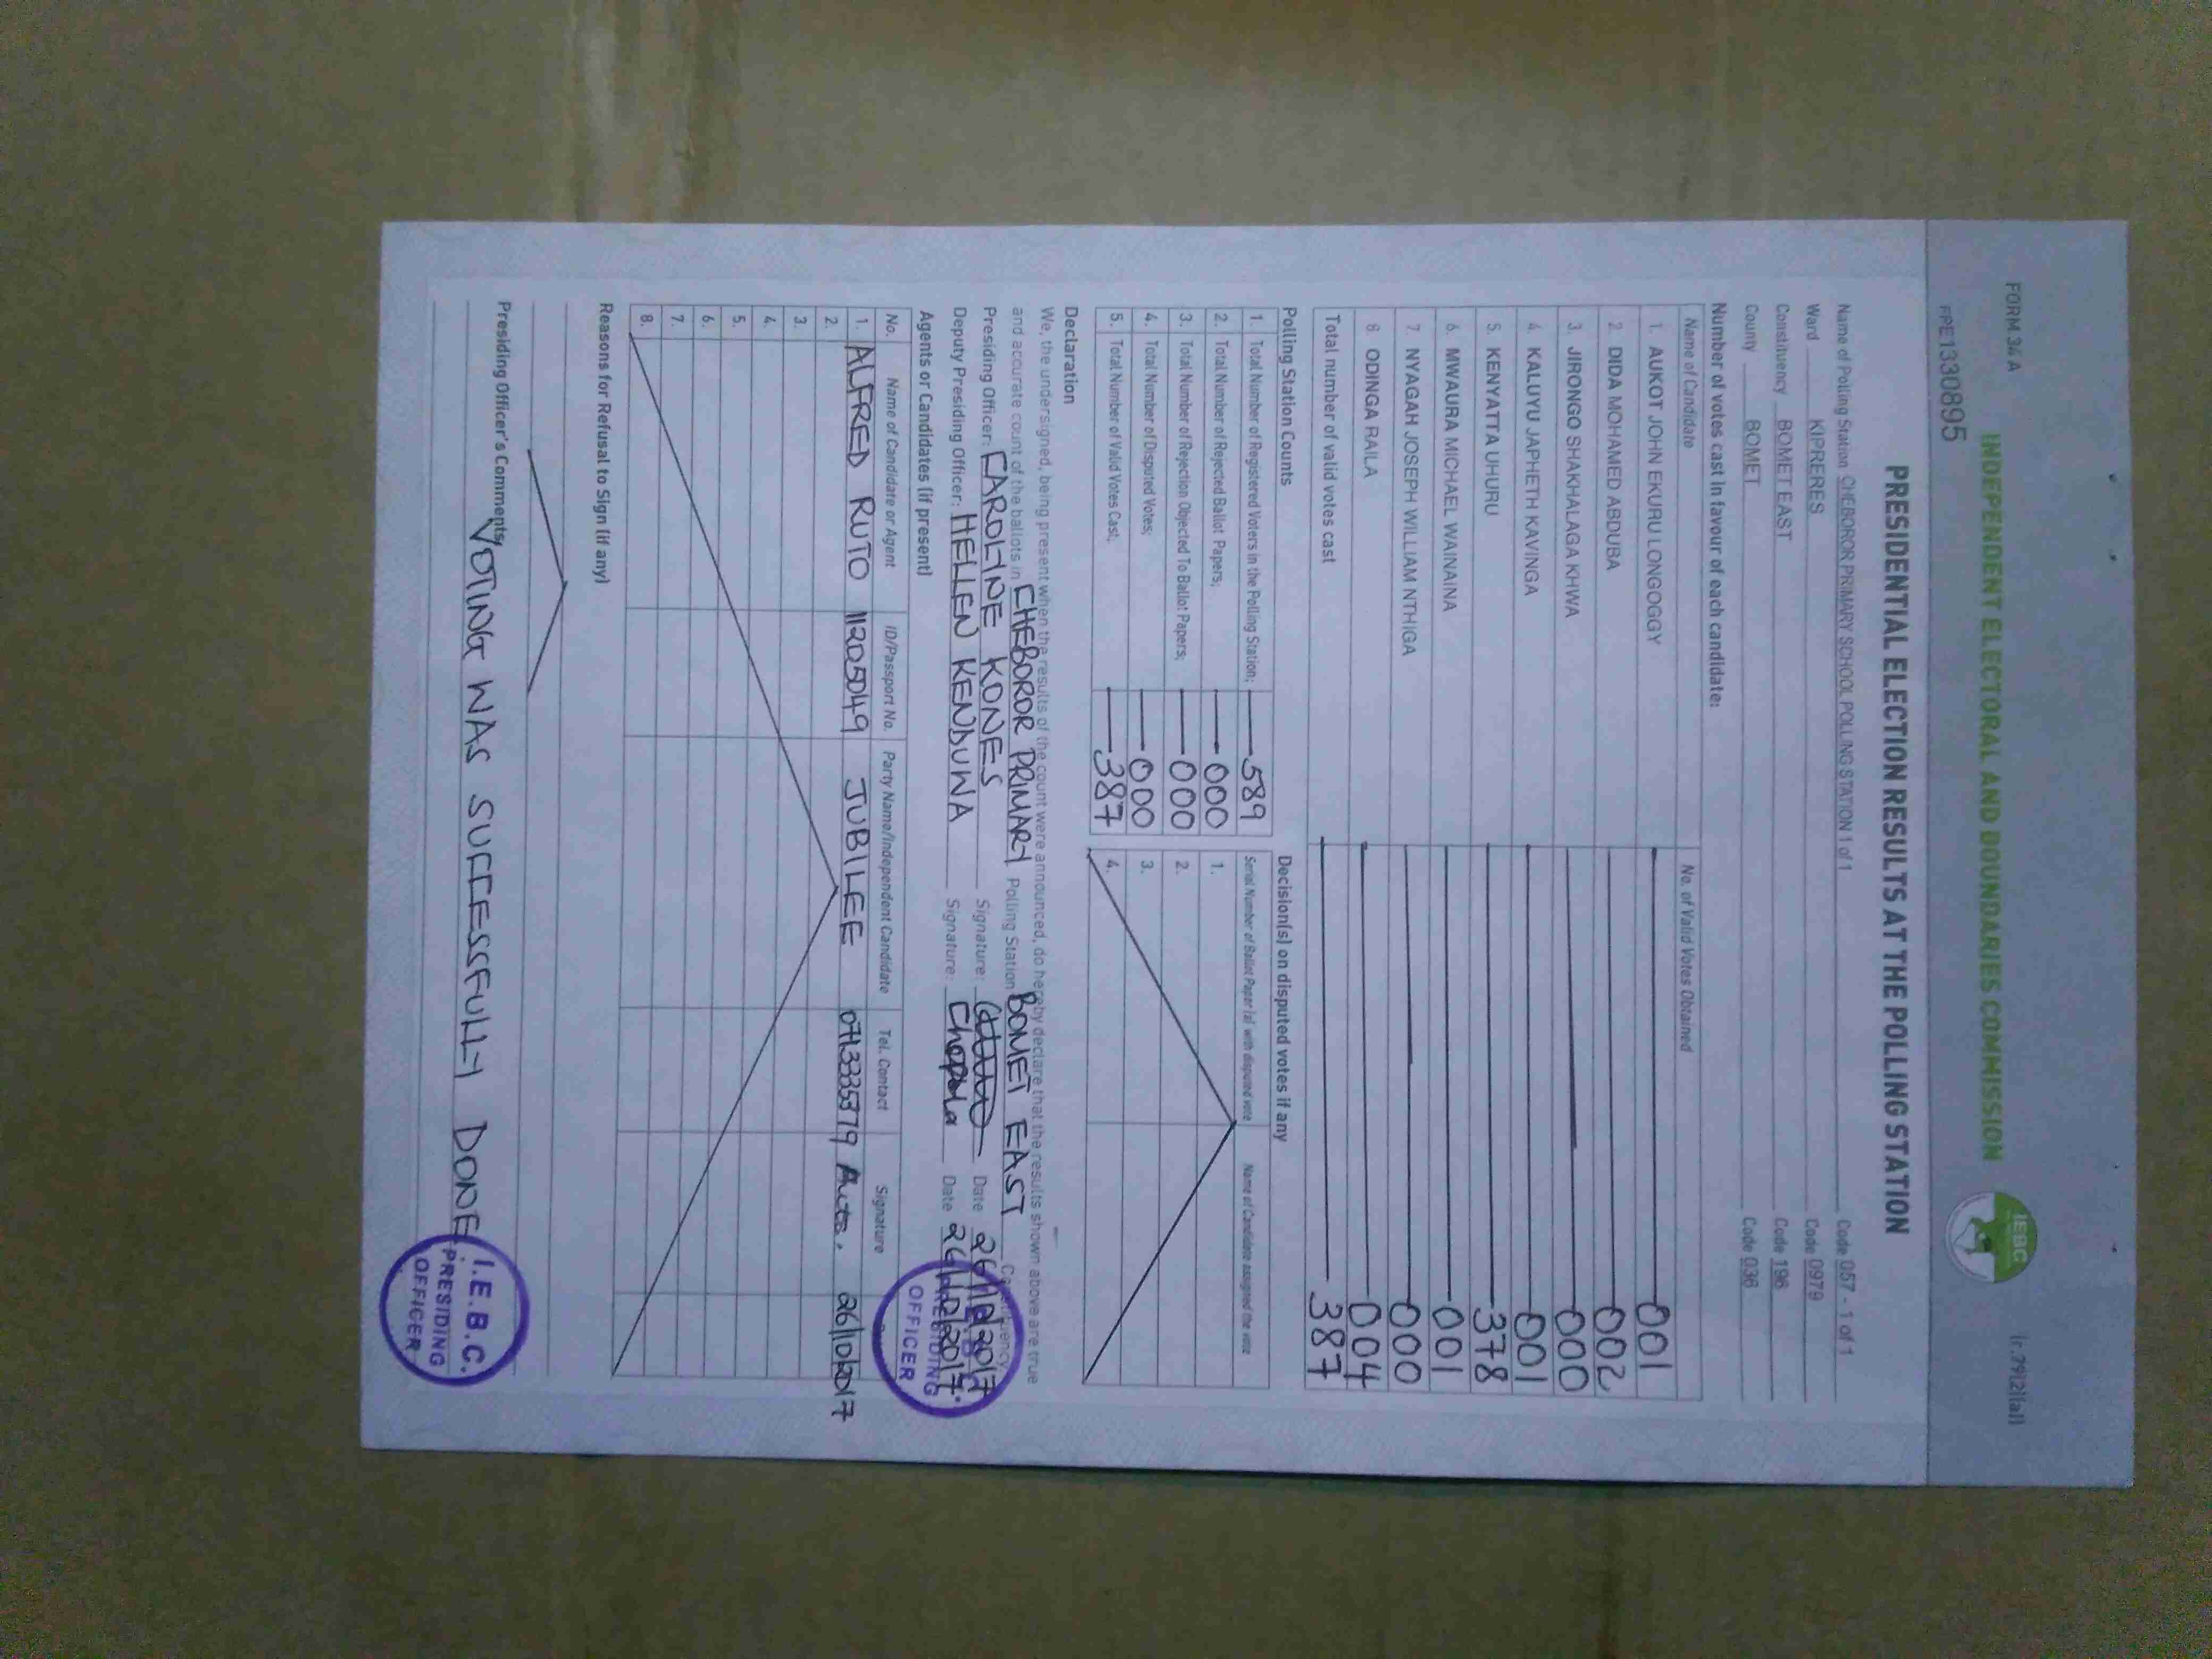 FORM 34A (r.79(2)(a))
INDEPENDENT ELECTORAL AND BOUNDARIES COMMISSION
IEBC
PPE1330895
PRESIDENTIAL ELECTION RESULTS AT THE POLLING STATION
Name of Polling Station CHEBOROR PRIMARY SCHOOL POLLING STATION 1 of 1 Code 057 - 1 of 1
Ward KIPRERES Code 0979
Constituency BOMET EAST Code 196
County BOMET Code 036
Number of votes cast in favour of each candidate:
Name of Candidate No. of Valid Votes Obtained
1. AUKOT JOHN EKURU LONGOGGY 001
2. DIDA MOHAMED ABDUBA 002
3. JIRONGO SHAKHALAGA KHWA 000
4. KALUYU JAPHETH KAVINGA 001
5. KENYATTA UHURU 378
6. MWAURA MICHAEL WAINAINA 001
7. NYAGAH JOSEPH WILLIAM NTHIGA 000
8. ODINGA RAILA 004
Total number of valid votes cast 387
Polling Station Counts Decision(s) on disputed votes if any
1. Total Number of Registered Voters in the Polling Station; 589 Serial Number of Ballot Paper (s) with disputed vote Name of Candidate assigned the vote
2. Total Number of Rejected Ballot Papers; 000 1.
3. Total Number of Rejection Objected To Ballot Papers; 000 2.
4. Total Number of Disputed Votes; 000 3.
5. Total Number of Valid Votes Cast; 387 4.
Declaration
We, the undersigned, being present when the results of the count were announced, do hereby declare that the results shown above are true
and accurate count of the ballots in CHEBOROR PRIMARY Polling Station BOMET EAST Constituency
Presiding Officer: CAROLINE KONES Signature: Date 26/10/2017
Deputy Presiding Officer: HELLEN KENDUWA Signature: Date 26/10/2017
PRESIDING
OFFICER
Agents or Candidates (if present)
No. Name of Candidate or Agent ID/Passport No. Party Name/Independent Candidate Tel. Contact Signature
1. ALFRED RUTO 11205049 JUBILEE 0713335379 26/10/2017
2.
3.
4.
5.
6.
7.
8.
Reasons for Refusal to Sign (if any)
Presiding Officer's Comments
VOTING WAS SUCCESSFULLY DONE
I.E.B.C.
PRESIDING
OFFICER